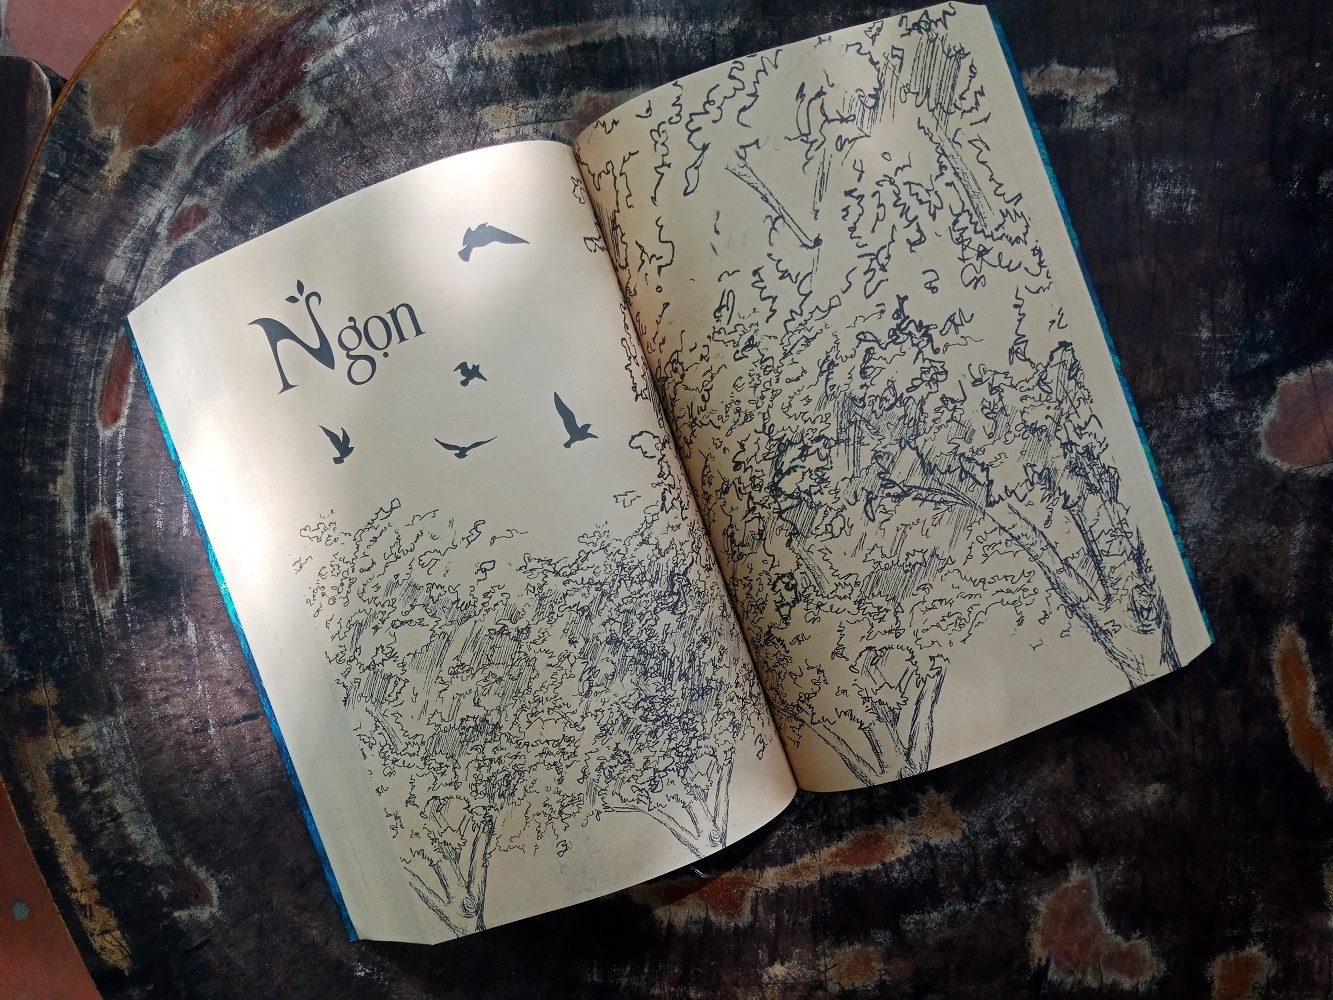 Ngọn